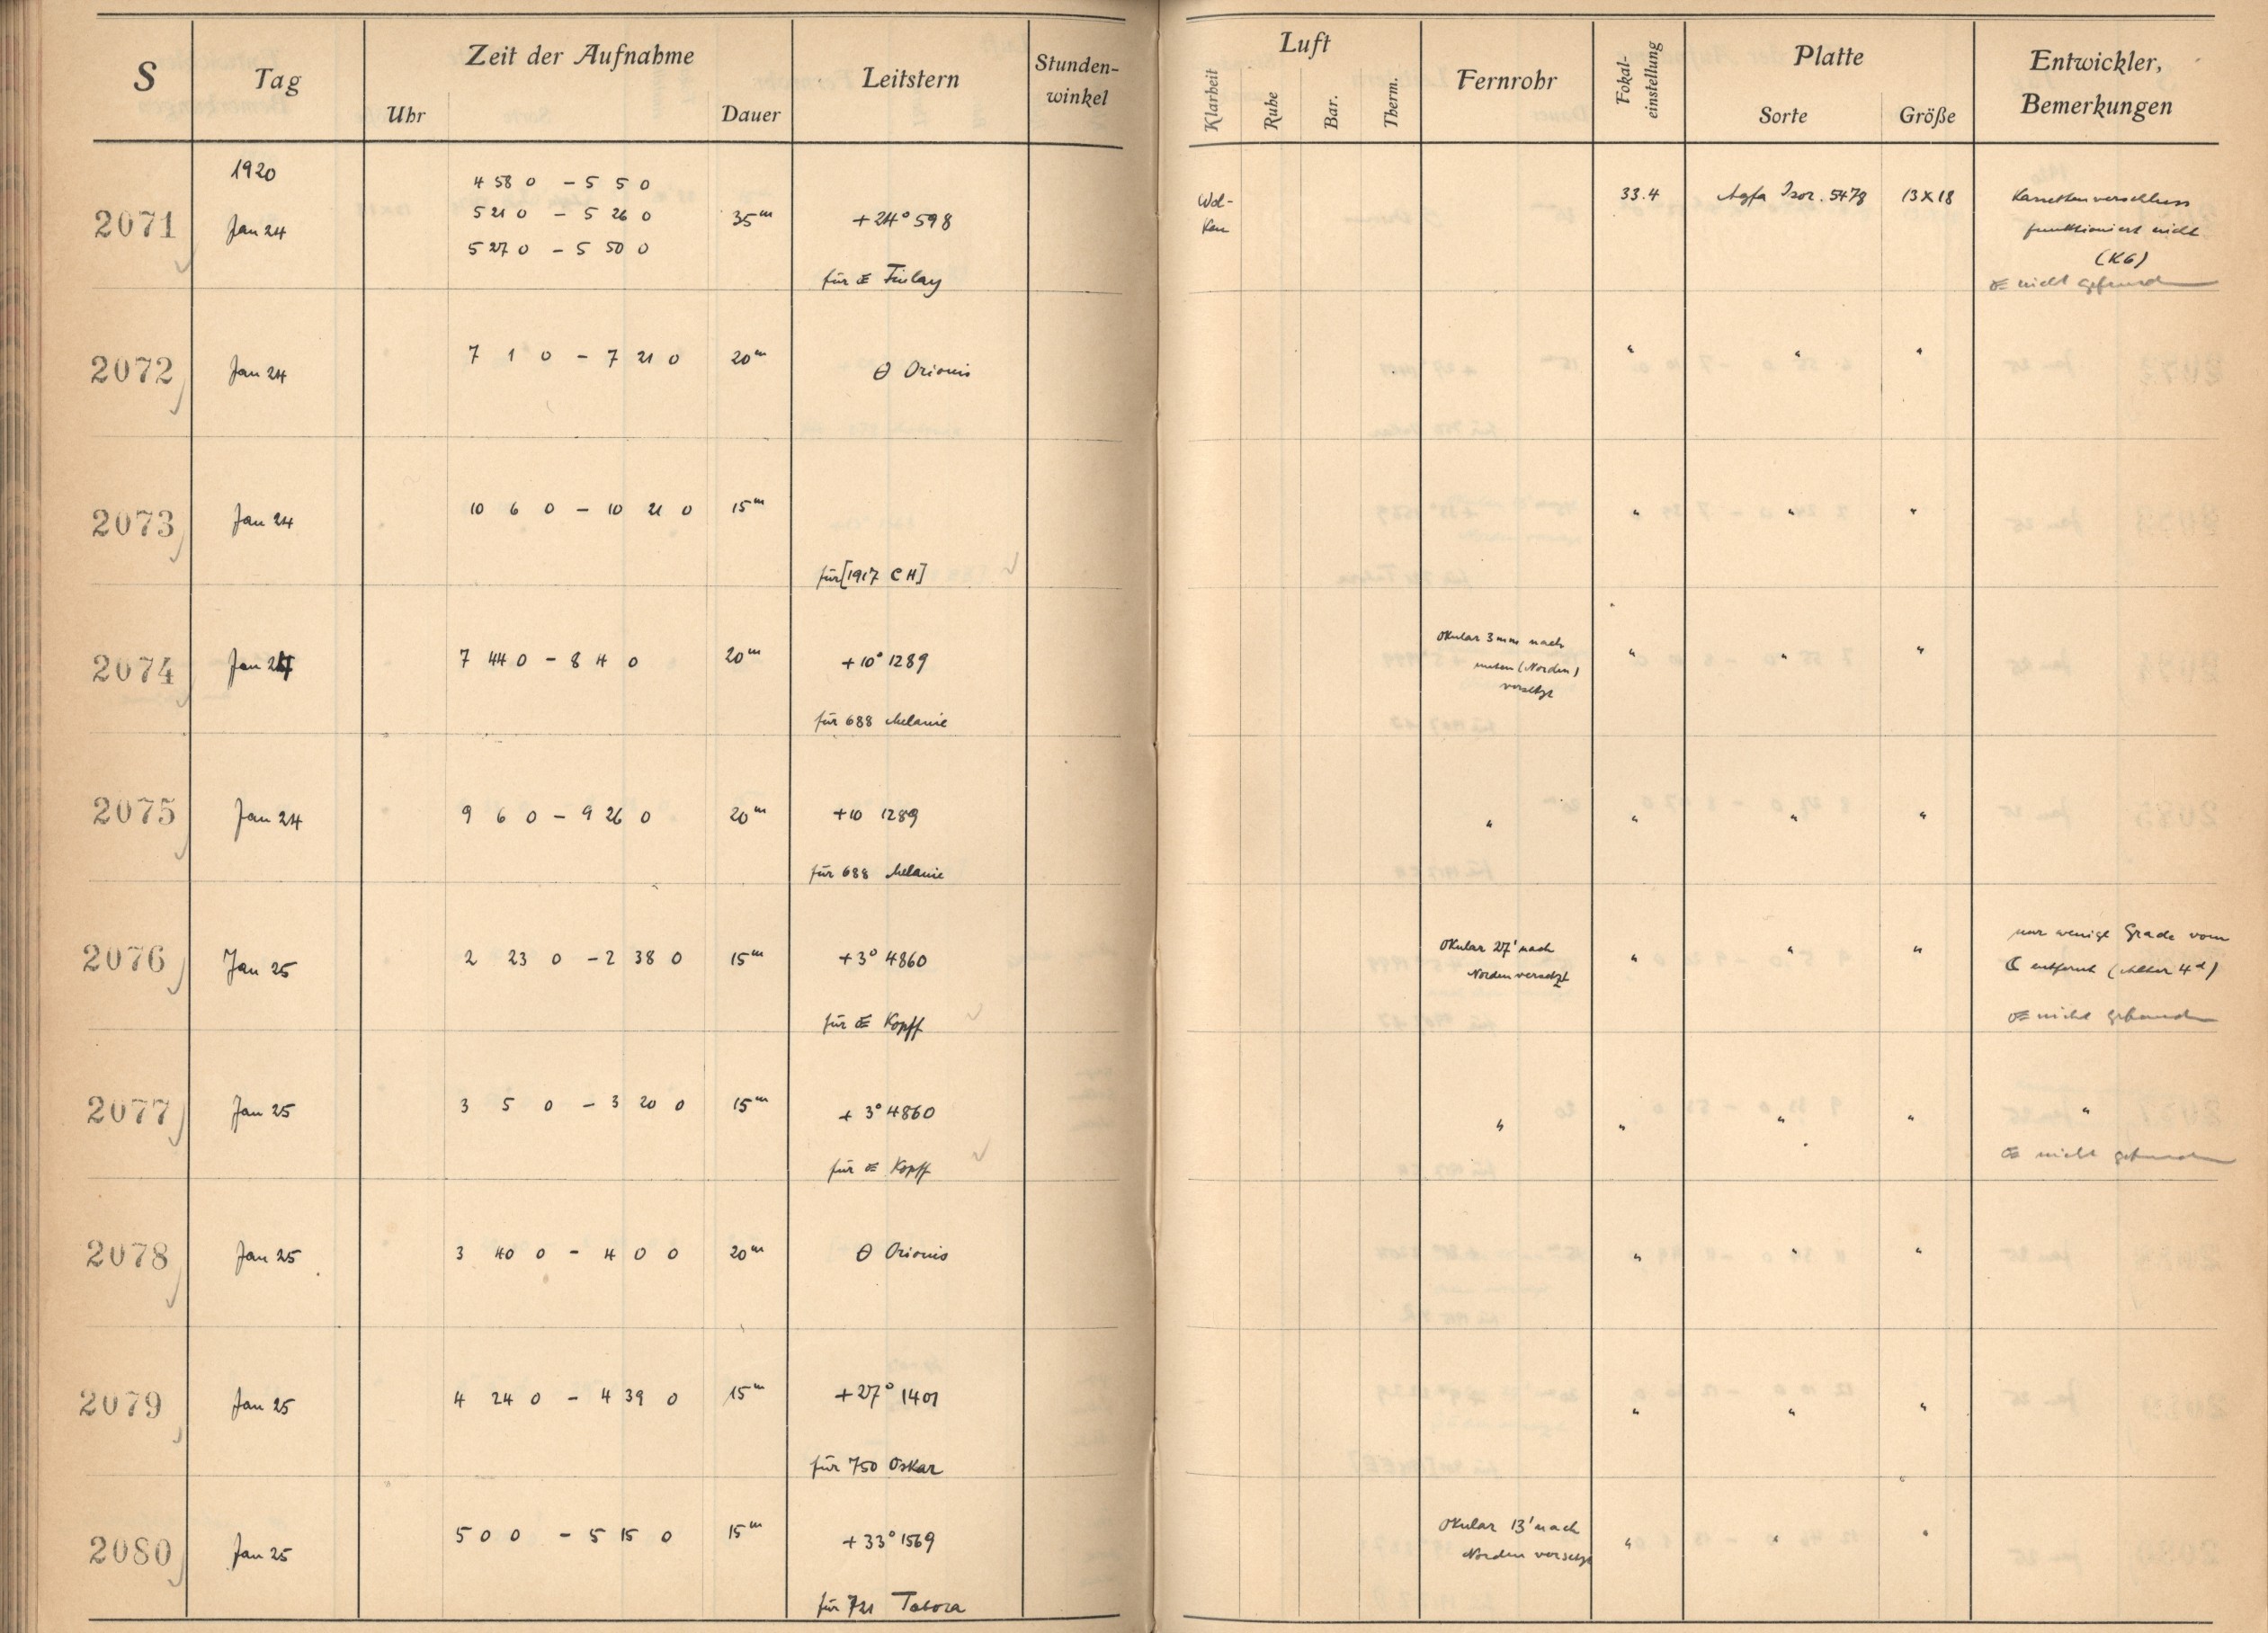 S Tag Zeit der Aufnahme Leitstern Stunden-
winkel
Uhr Dauer
Luft Fernrohr Fokal-
einstellung Platte Entwickler,
Bemerkungen
Klarheit Ruhe Bar. Therm. Sorte Größe
1920
2071 Jan 24
4 58 0 - 5 5 0
5 21 0 - 5 26 0 35m +24° 598
5 27 0 - 5 50 0
für ☄ Finlay
Wol-
ken
33.4 Agfa Isor. 5478 13 x 18 Kassettenverschluss
funktioniert nicht
(K6)
☄ nicht gefunden
2072 Jan 24 7 1 0 - 7 21 0 20m θ Orionis " " "
2073 Jan 24 10 6 0 - 10 21 0 15m " " "
für [1917 CH]
2074 Jan 24 7 44 0 - 8 4 0 20m +10° 1289 Okular 3mm nach
unten (Norden)
versetzt " " "
für 688 Melanie
2075 Jan 24 9 6 0 - 9 26 0 20m +10 1289 " " " "
für 688 Melanie
2076 Jan 25 2 23 0 - 2 38 0 15m +3° 4860 Okular 27' nach
Norden versetzt " " " nur wenige Grade vom
☾ entfernt (Alter 4d)
für ☄ Kopff ☄ nicht gefunden
2077 Jan 25 3 5 0 - 3 20 0 15m +3° 4860 " " " " "
für ☄ Kopff ☄ nicht gefunden
2078 Jan 25 3 40 0 - 4 0 0 20m θ Orionis " " "
2079 Jan 25 4 24 0 - 4 39 0 15m +27° 1401 " " "
für 750 Oskar
2080 Jan 25 5 0 0 - 5 15 0 15m +33° 1569 Okular 13' nach
Norden versetzt " " "
für 721 Tabora